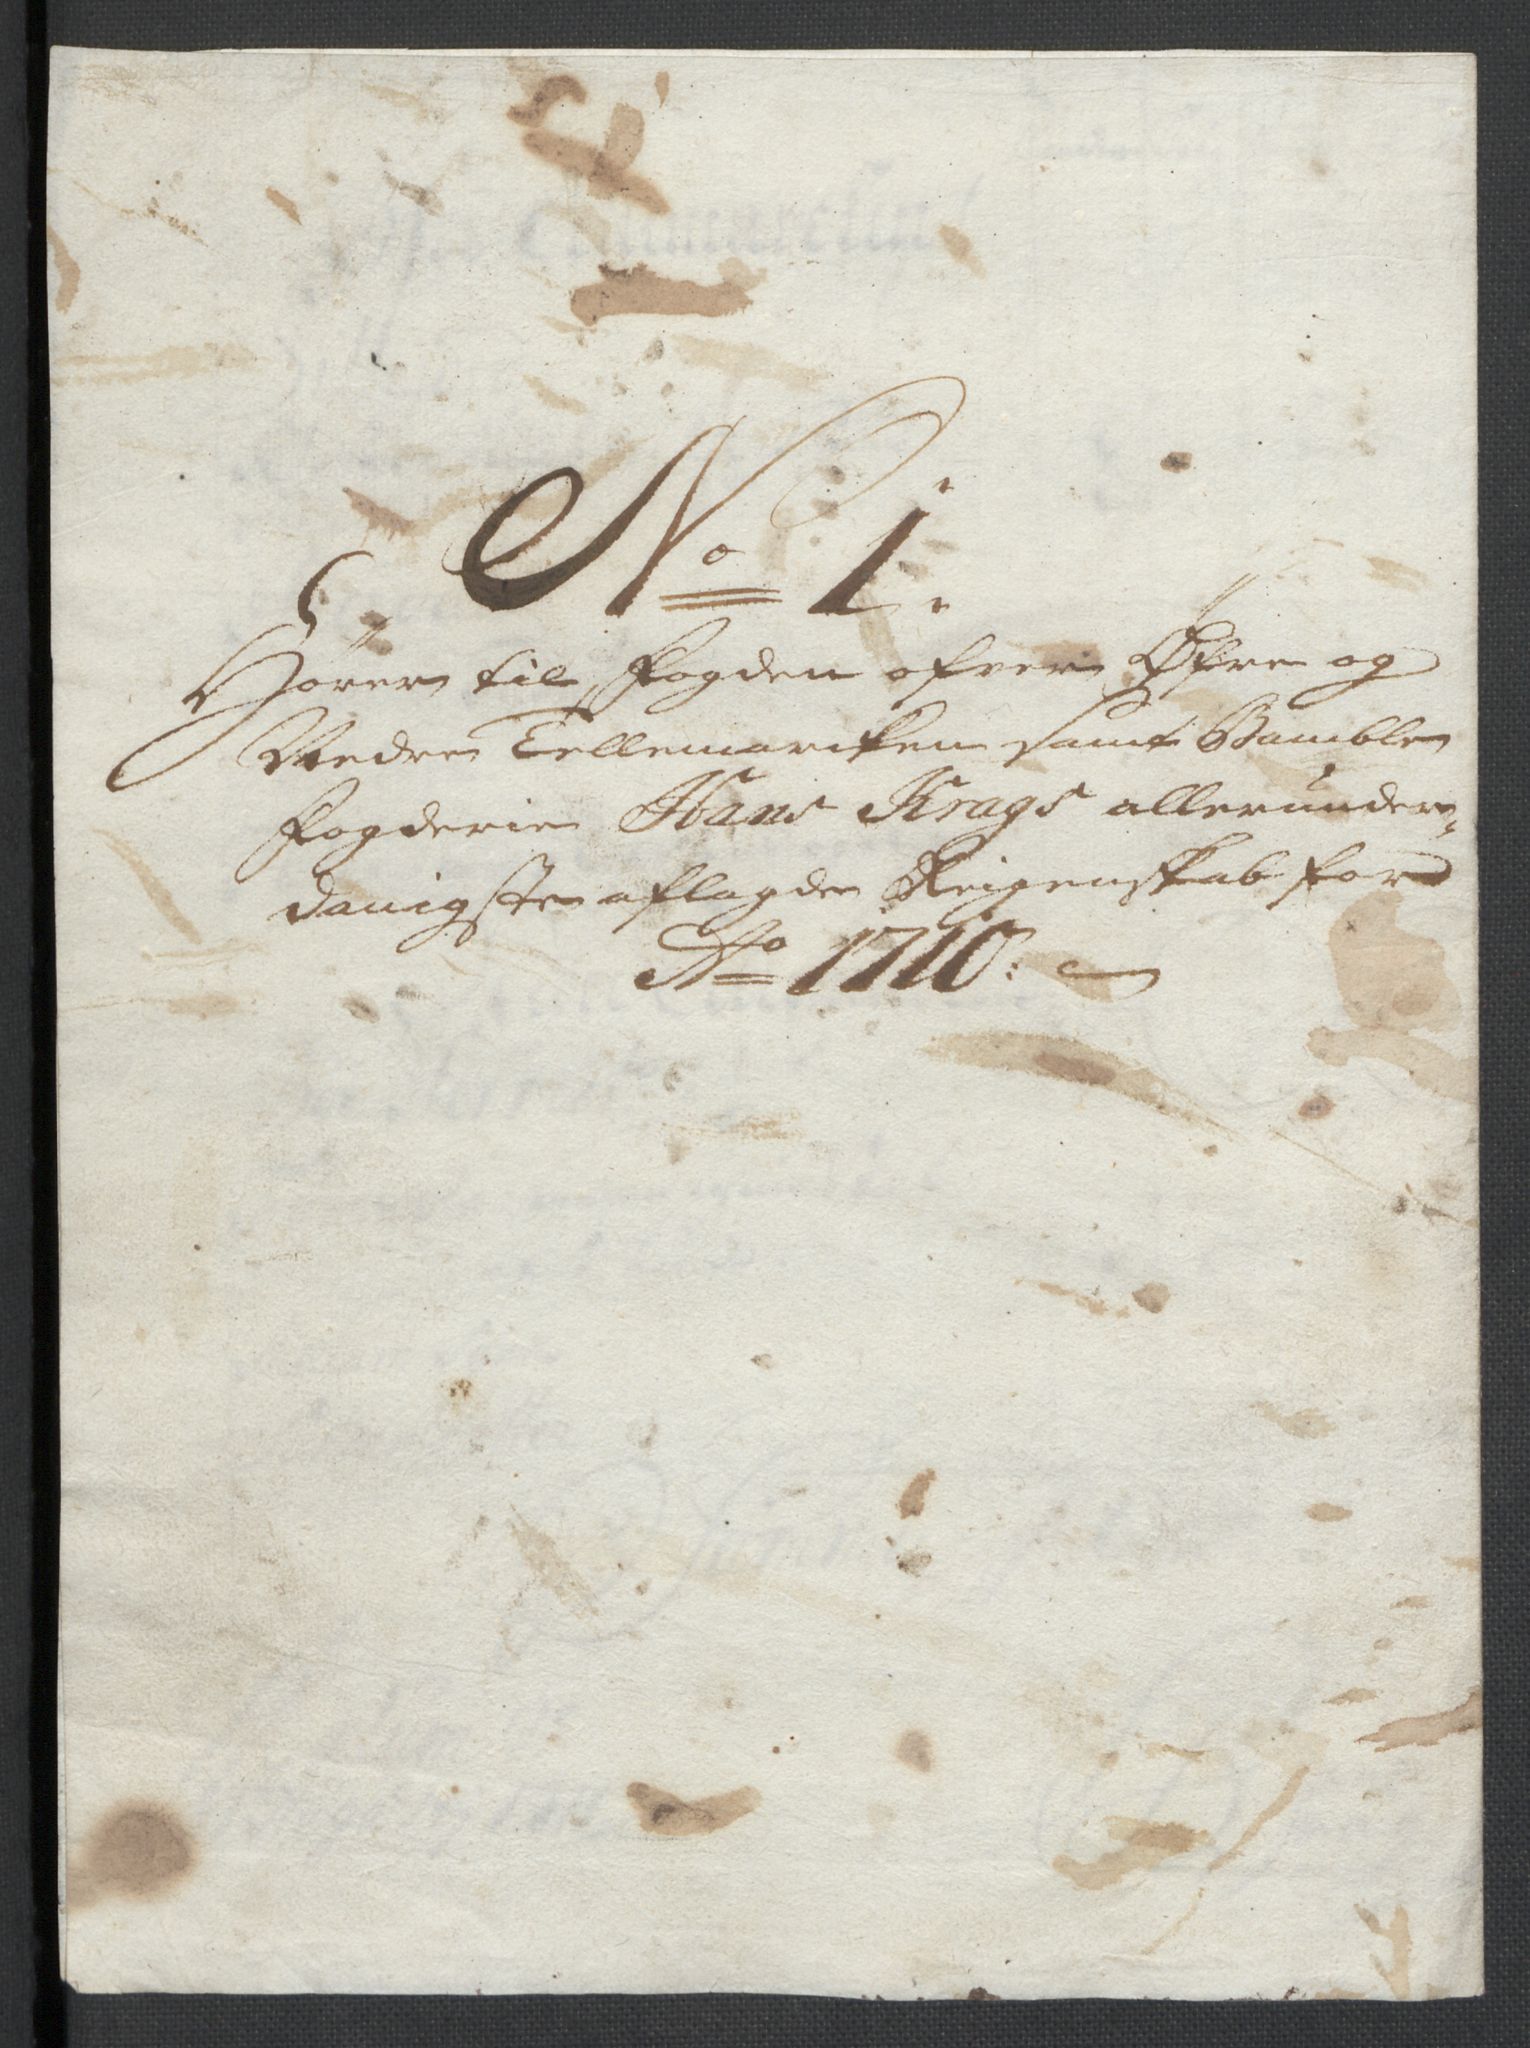 No 1:
Hører til Fogden ofver Øfre og
Nedre Tellemarcken samt Bamble
Fogderie Hans Krags allerunder-
danigste aflagde Reigenskab for
Ao 1710: